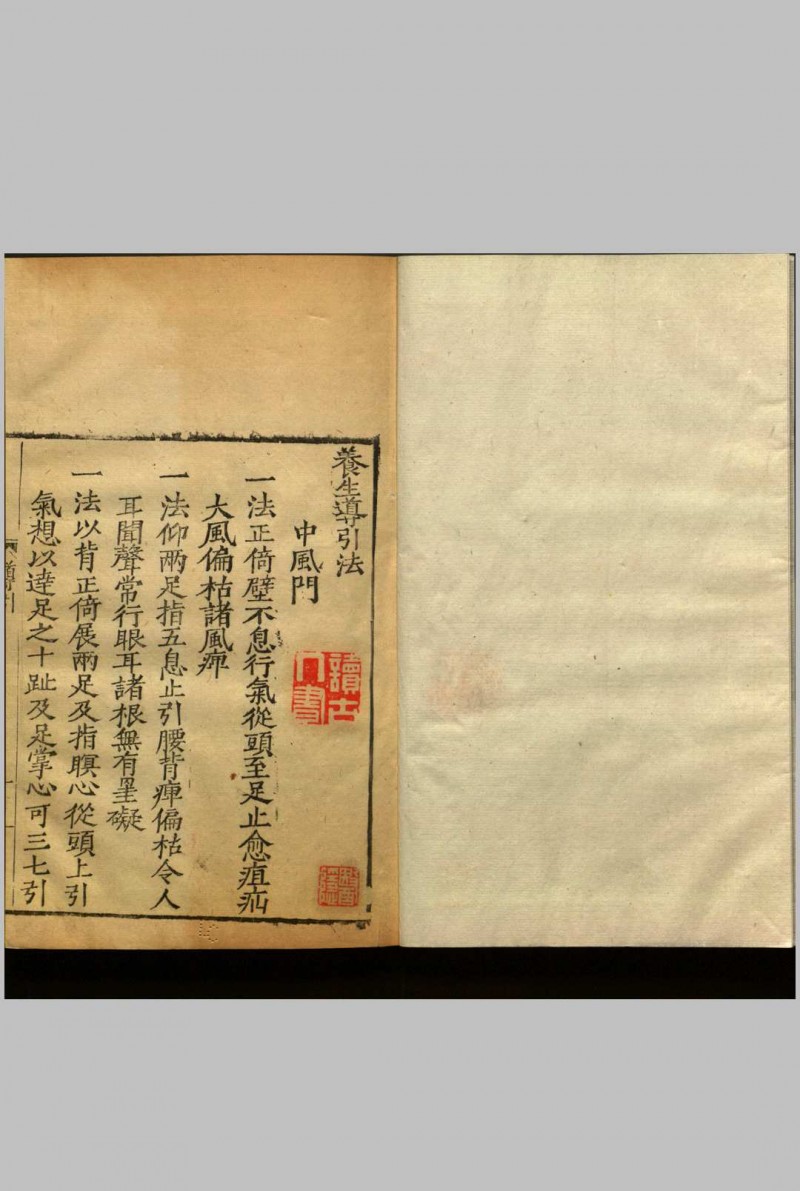 養生導引法
中風門
一法正倚壁不息行氣從頭至足止愈疽疝
大風偏枯諸風痺
一法仰兩足指五息止引腰背痺偏枯令人
耳聞聲常行眼耳諸根無有罣礙
一法以背正倚展兩足及指瞑心從頭上引
氣想以達足之十趾及足掌心可三七引
導引
讀古
人書